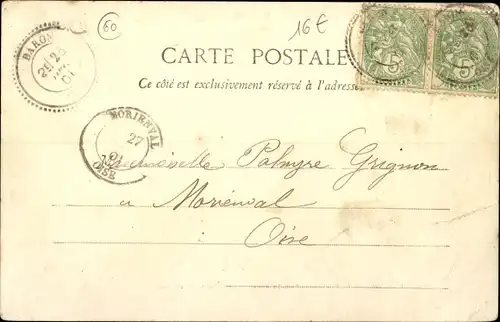 60
16€
BARON
2E 26
01
CARTE POSTALE
Ce côté est exclusivement réservé à l'adresse
5
5
MORIENVAL
27
OISE
Mademoiselle Palmyre Grignon
a Morienval
Oise